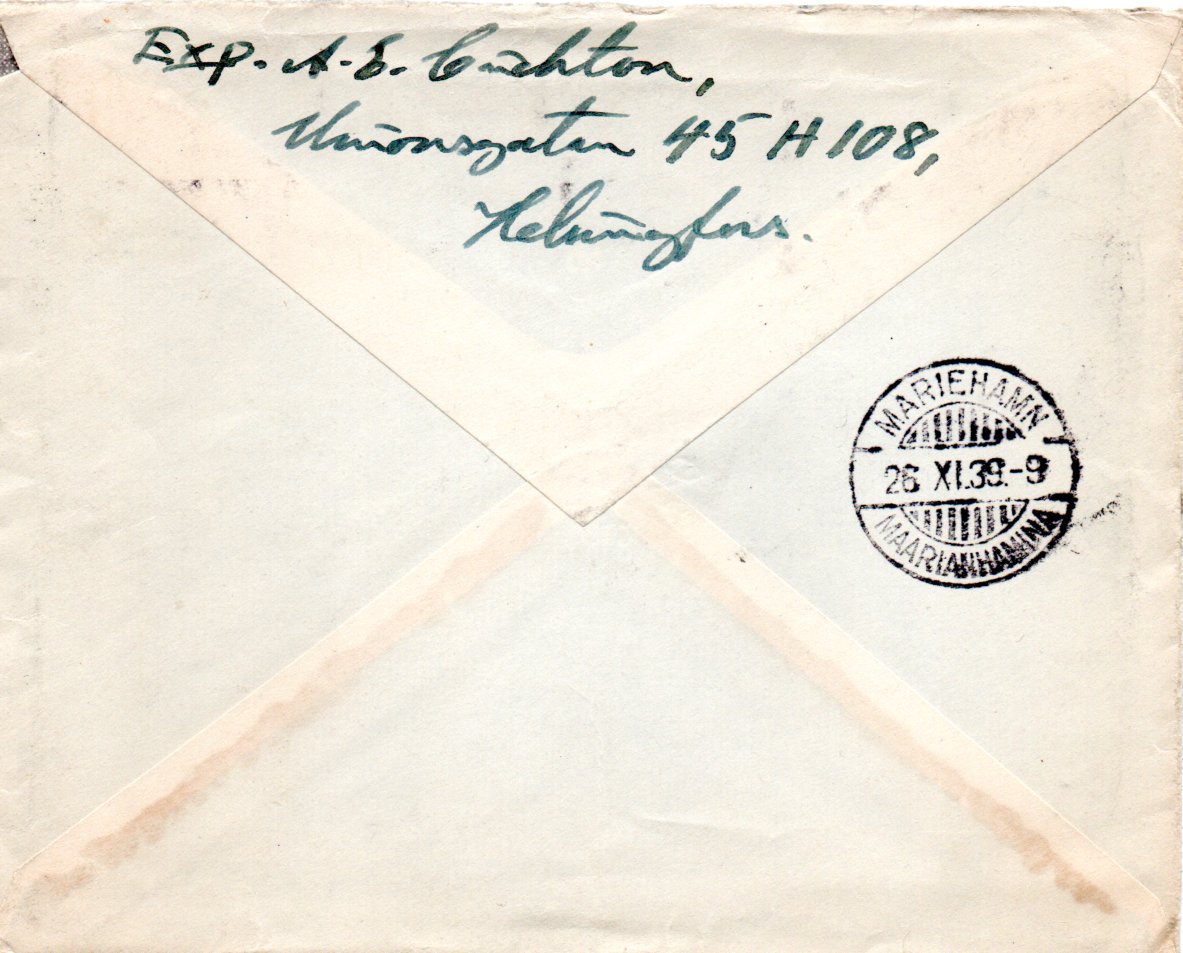 Exp. A. E. Crichton,
Unionsgatan 45 H 108,
Helsingfors.
MARIEHAMN
26 XI.39.-9
MAARIANHAMINA